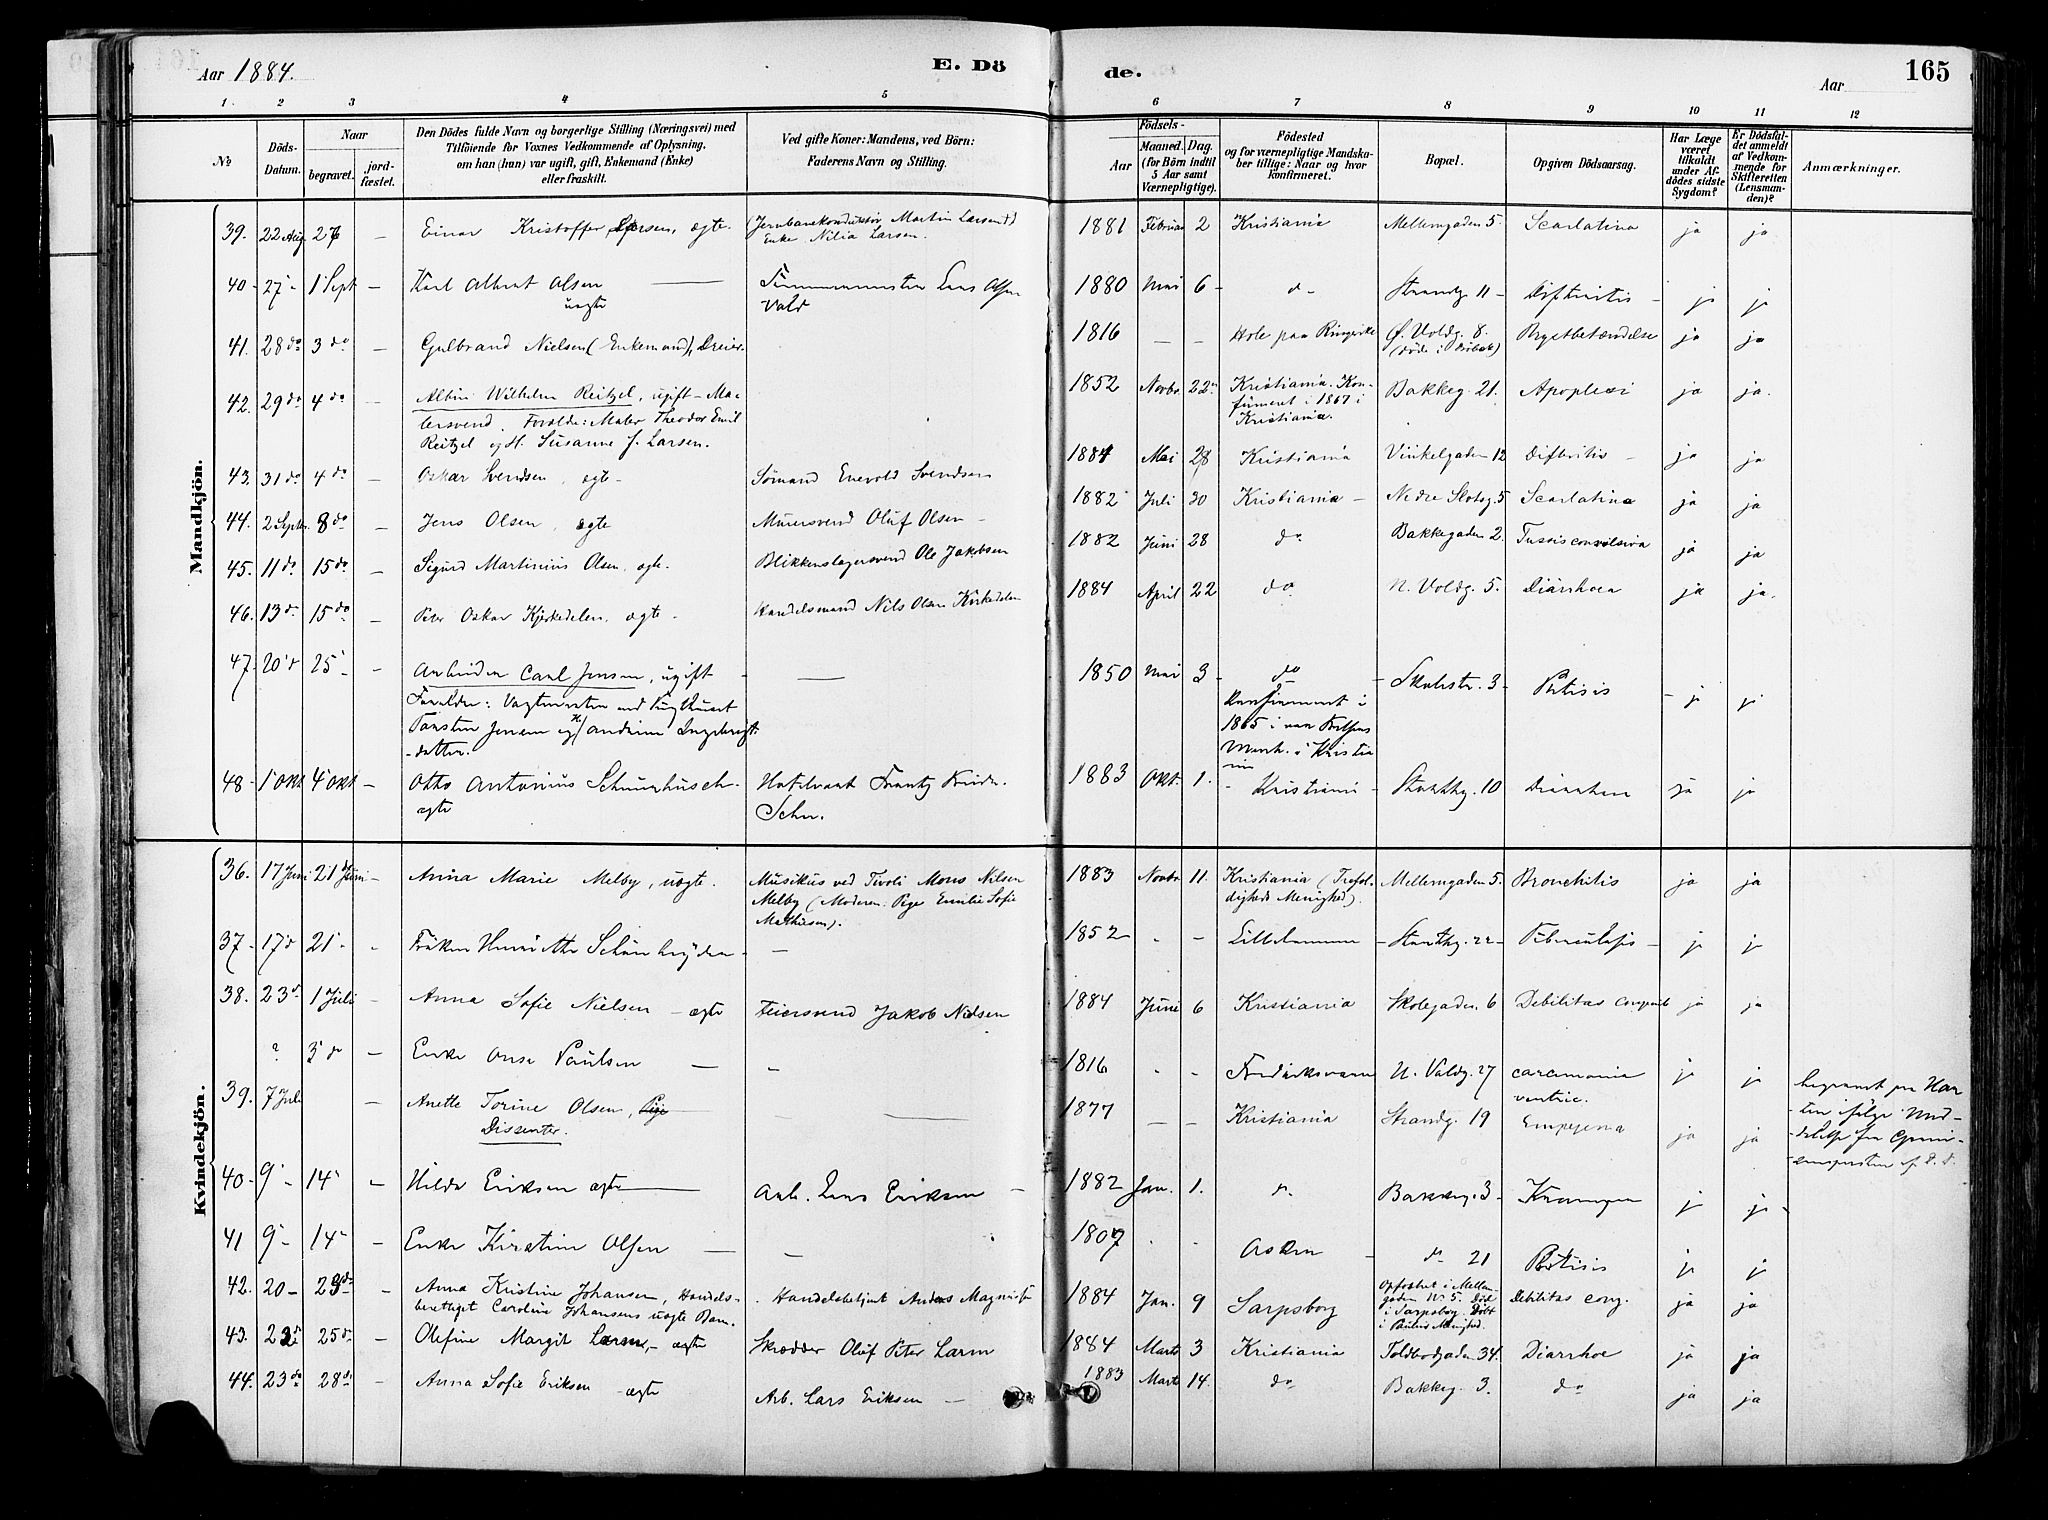 Aar 1884.
E. Dö
de.
Aar
165
1.
2
3
4
5
6
7
8
9
10
11
12
No
Döds-
Datum.
Naar
begravet.
jord-
fæstet.
Den Dödes fulde Navn og borgerlige Stilling (Næringsvei) med
Tilföiende for Voxnes Vedkommende af Oplysning.
om han (hun) var ugift, gift, Enkemand (Enke)
eller fraskilt.
Ved gifte Koner: Mandens, ved Börn:
Faderens Navn og Stilling.
Födsels-
Aar
Maaned.
Dag.
(for Börn indtil
5 Aar samt
Værnepligtige).
Födested
og for værnepligtige Mandska-
ber tillige: Naar og hvor
konfirmeret.
Bopæl.
Opgiven Dödsaarsag.
Har Læge
været
tilkaldt
under Af-
dödes sidste
Sygdom?
Er Dödsfal-
det anmeldt
af Vedkom-
mende for
Skifteretten
(Lensman-
den)?
Anmærkninger.
Mandkjön.
39. 22 Aug 26 – Einar Kristoffer Larsen, ægte. (Jernbanekonduktör Martin Larsen †)
Enke Nilia Larsen. 1881 Februar 2 Kristiania Mellemgaden 5. Scarlatina ja ja
40 - 27 - 1 Sept – Karl Albert Olsen —
uægte Lars Olsen
Vold 1880 Mai 6 - do Strandg. 11 - Difteritis - j j
41. 28 do 3 do – Gulbrand Nielsen (Enkemand), Dreier. 1816 — — Hole paa Ringerike Ø. Voldg. 8. Brystbetændelse ja ja
42. 29 do 4 do – Albin Wilhelm Reitzel, ugift – Ma-
lersvend. Foreldr: Maler Theodor Emil
Reitzel og H. Susanne J. Larsen. 1852 Novbr. 22 Kristiania. Kon-
firmeret i 1867 i
Kristiania. Bakkeg. 21. Apoplexi ja ja.
43. 31 do 4 do – Oskar Svendsen, ægte - Sømand Enevold Svendsen 1884 Mai 28 Kristiania Vinkelgaden 12 Difteritis - ja ja
44. 2 Septr. 8 do – Jens Olsen, ægte Murersvend Oluf Olsen - 1882 Juli 30 Kristiania - Nedre Slotsg. 5 Scarlatina ja ja
45. 11 do 15 do – Sigurd Martinius Olsen, ægte. Blikkenslagersvend Ole Jakobsen 1882 Juni 28 do Bakkegaden 2. Tussis convulsiva ja ja
46. 13 do 15 do – Peter Oskar Kjerkedelen, ægte - Handelsmand Nils Olsen Kirkedelen 1884 April 22 do N. Voldg. 5. Diarrhoea ja ja.
47. 20 d 25 – Arbeider Carl Jensen, ugift — 1850 Mai 3 - do - 3 - Ptisis - j j
Forældre: ved
Torsten Jensen og H.
-datter.
Konfirmeret i
1865 i
Menh. i Kristia
nia
48 - 1 Okt 4 Okt – Otto Antonius
ægte 1883 Okt. 1. - Kristiania - 10 Diarrhoea ja ja
Kvindekjön.
36. 17 Juni 21 Juni – Anna Marie Melby, uægte. Musikus ved Tivoli Mons Nilsen
Melby (Moderen: Pige Emilie Sofie
Mathisen). 1883 Novbr 11. Kristiania (Trefol-
digheds Menighed). Mellemgaden 5. Bronchitis ja ja
37 - 17 d 21 - – Frøken Henriette — 1852 - - Lillehammer - 22 - Tuberculosis - j j
38. 23 d 1 Juli – Anna Sofie Nielsen - ægte Feiersvend Jakob Nielsen 1884 Juni 6 Kristiania Skolegaden 6 Debilitas congenit ja ja
? 3 do – Enke Anne Paulsen — – 1816 - - Fredriksværn N. Voldg. 27 carcinoma
ventric. j j
39. 7 Juli – Anette Torine Olsen, Pige
Dissenter. — 1877 — — Kristiania Strandg. 19 Empyema ja ja
40 - 9 - 14 – Hilda Eriksen ægte — Arb. Lars Eriksen - 1882 Jan. 1. do Bakkeg. 3 - j j -
41 9 - 14 - – Enke Kirstine Olsen — – 1807 - - Asker - do 21 Ptisis j j
42. 20 - 23 do – Anna Kristine Johansen, Handels-
betjent Caroline Johansens uægte Barn. Handelsbetjent Anders Magnus 1884 Jan. 9 Sarpsborg Opfostret i Mellem-
gaden No 5. Död
i Sarpsborg. Döbt
i Paulus Menighed. Debilitas cong. ja ja
43. 22 d 25 d – Olefine Margit Larm, - ægte Skrædder Oluf Peter Larm 1884 Marts 3 Kristiania Toldbodgaden 34. Diarrhoe ja ja
44. 23 do 28 d – Anna Sofie Eriksen - ægte Arb. Lars Eriksen — 1883 Marts 14. do Bakkeg. 3. do ja ja